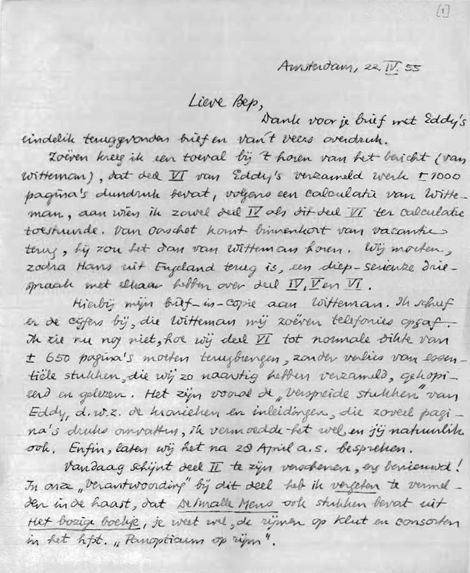 [1]
Amsterdam, 22 IV 55
Lieve Bep,
Dank voor je brief met Eddy's
eindelijk teruggevonden brief en van 't Veers overdruk.
Zoëven kreeg ik een toeval bij 't horen van het bericht (van
Witteman), dat deel VI van Eddy's verzameld werk ± 1000
pagina's dundruk bevat, volgens een calculatie van Witte-
man, aan wien ik zowel deel IV als dit deel VI ter calculatie
toestuurde. Van Oorschot komt binnenkort van vacantie
terug, hij zou het dan van Witteman horen. Wij moeten,
zodra Hans uit Engeland terug is, een diep-serieuze drie-
spraak met elkaar hebben over deel IV, V en VI.
Hierbij mijn brief-in-copie aan Witteman. Ik schreef
er de cijfers bij, die Witteman mij zoëven telefonies opgaf.
Ik zie nu nog niet, hoe wij deel VI tot normale dikte van
± 650 pagina's moeten terugbrengen, zonder verlies van essen-
tiële stukken, die wij zo naarstig hebben verzameld, gekopi-
eerd en gelezen. Het zijn vooral de "verspreide stukken" van
Eddy, d.w.z. de kronieken en inleidingen, die zoveel pagi-
na's druks omvatten, ik vermoedde het wel, en jij natuurlijk
ook. Enfin, laten wij het na 29 April a.s. bespreken.
Vandaag schijnt deel II te zijn verschenen, erg benieuwd!
In onze "Verantwoording" bij dit deel heb ik vergeten te vermel-
den in de haast, dat De Smalle Mens ook stukken bevat uit
Het bozige boekje, je weet wel, de rijmen op Klut en consorten
in het hfst. "Panopticum op rijm".